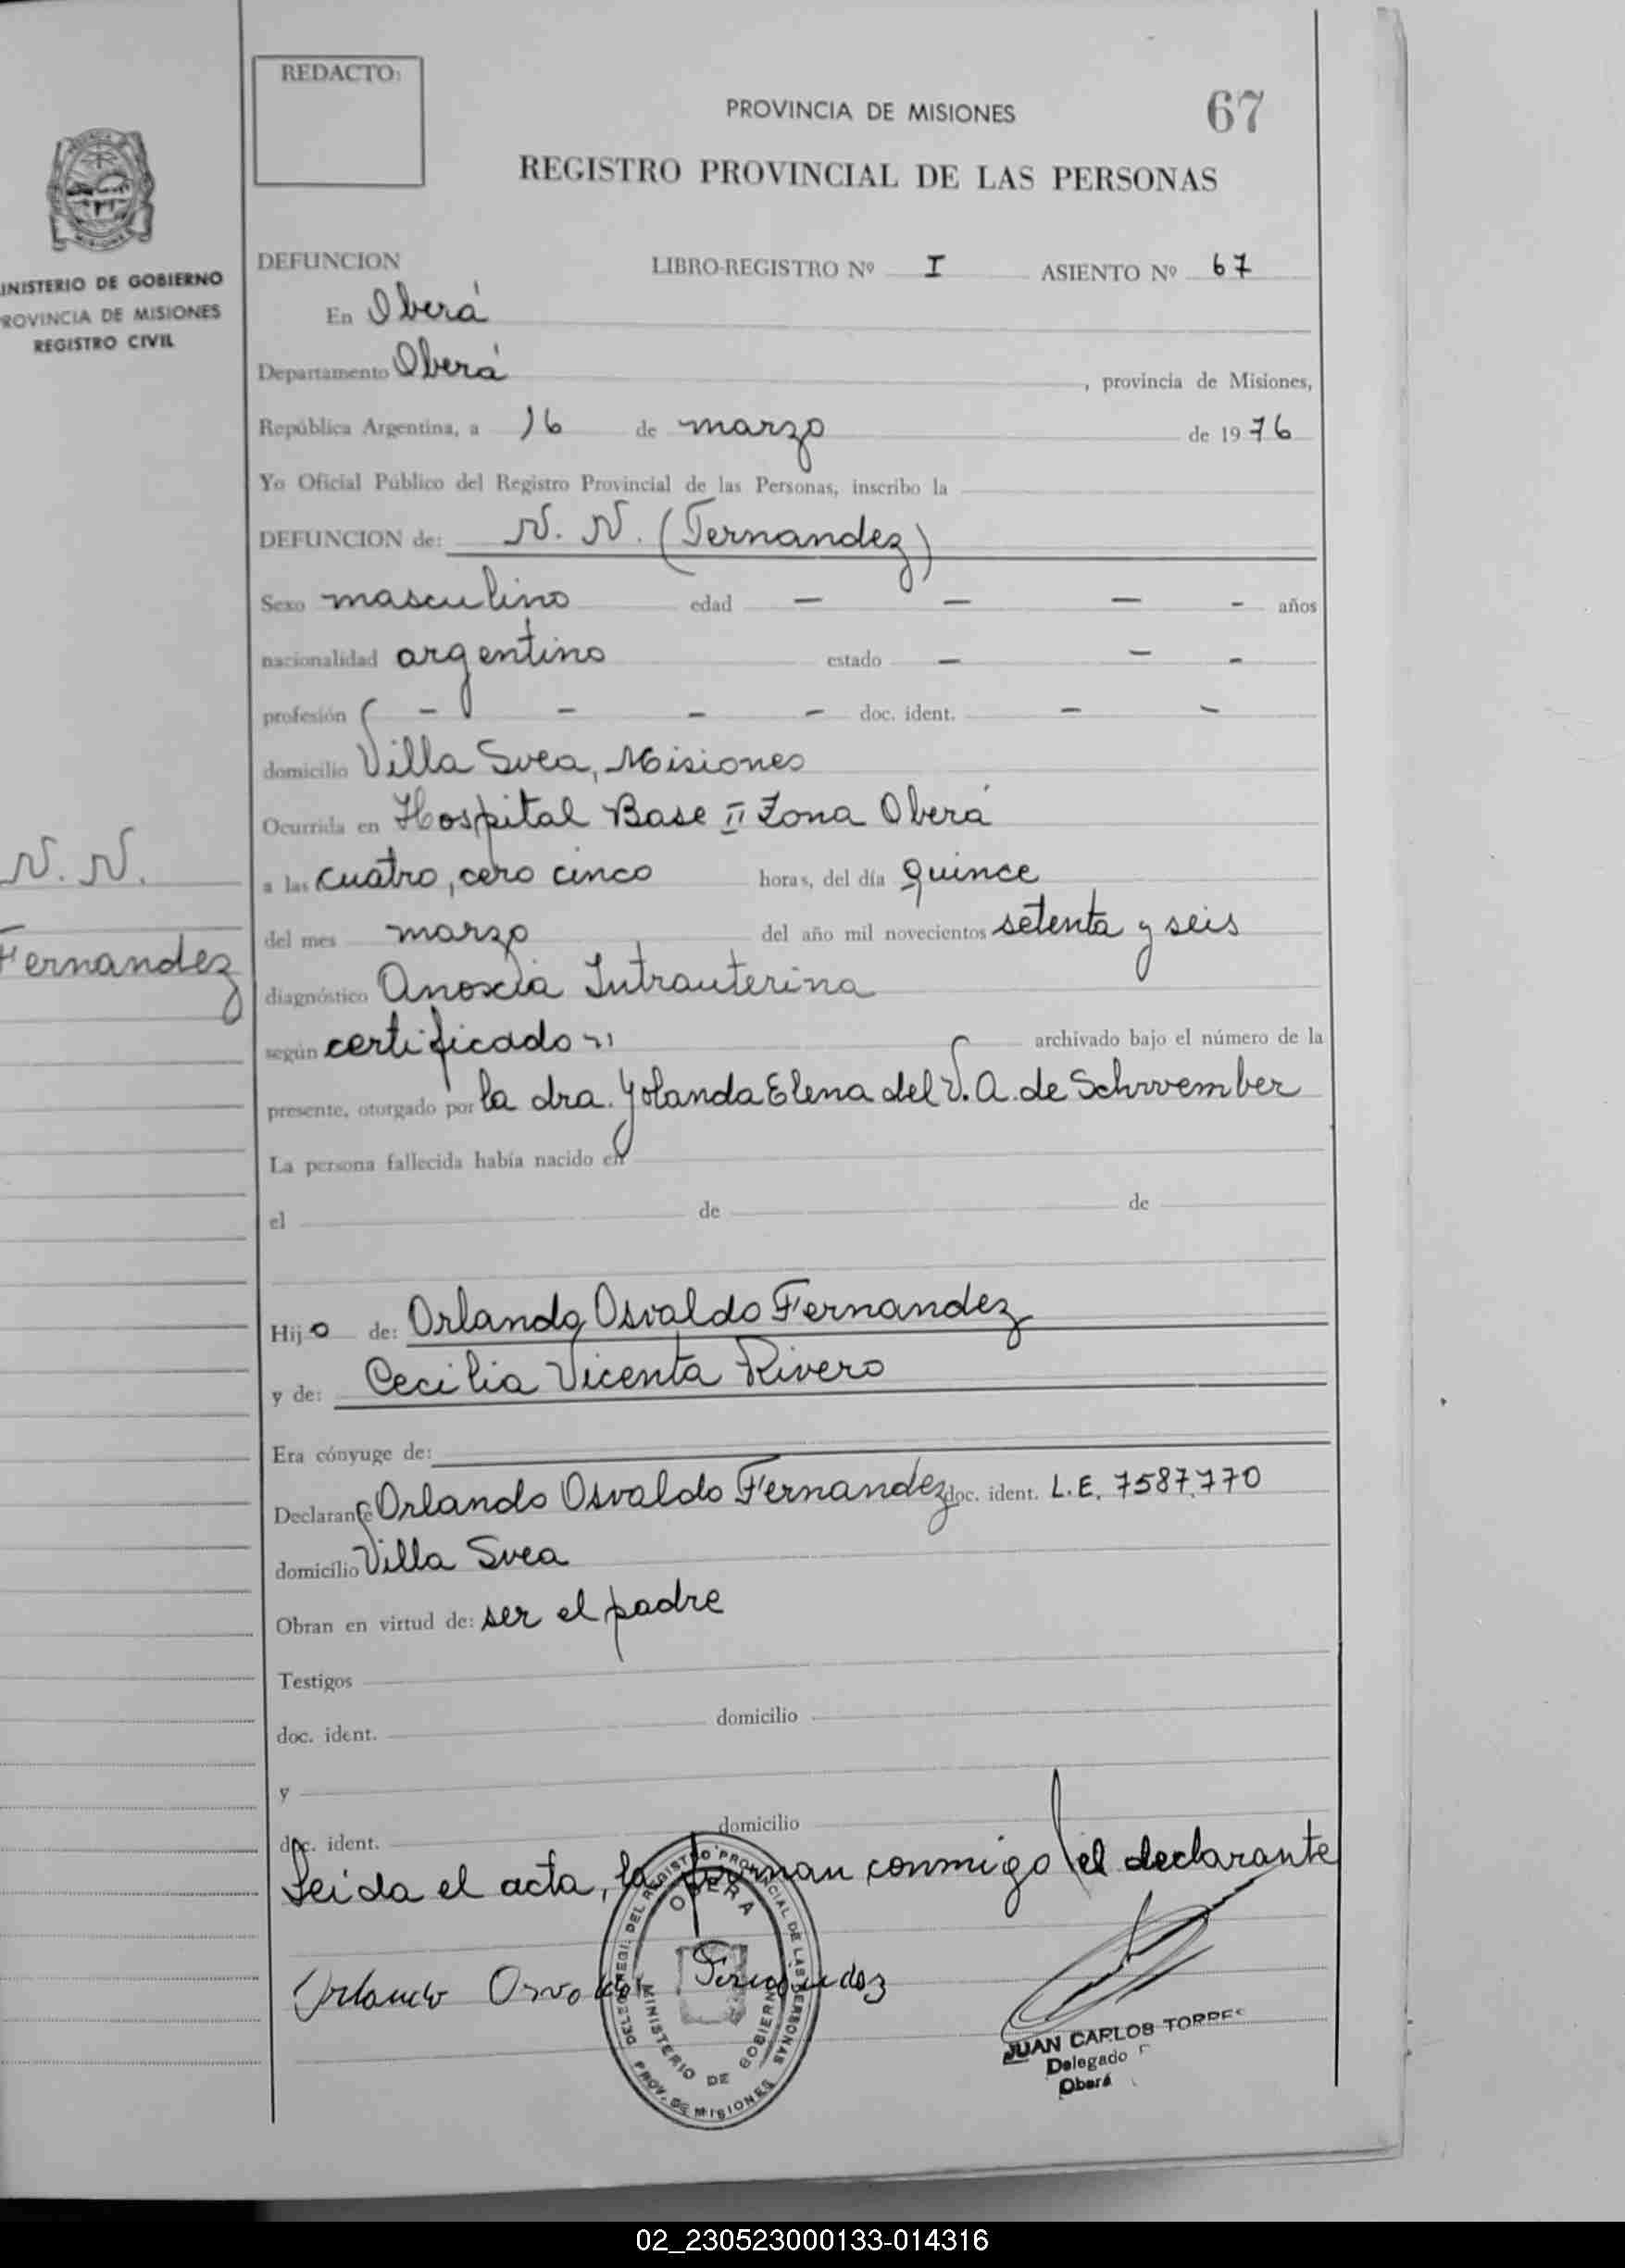 REDACTO:
PROVINCIA DE MISIONES
67
REGISTRO PROVINCIAL DE LAS PERSONAS
INISTERIO DE GOBIERNO
ROVINCIA DE MISIONES
REGISTRO CIVIL
DEFUNCION LIBRO-REGISTRO Nº I ASIENTO Nº 67
En Oberá
Departamento Oberá, provincia de Misiones,
República Argentina, a 16 de marzo de 1976
Yo Oficial Público del Registro Provincial de las Personas, inscribo la
DEFUNCION de: N. N. (Fernandez)
Sexo masculino edad — — — - años
nacionalidad argentino estado — — -
profesión - - - - doc. ident. - -
domicilio Villa Svea, Misiones
Ocurrida en Hospital Base II Zona Oberá
N. N.
a las cuatro, cero cinco horas, del día quince
del mes marzo del año mil novecientos setenta y seis
Fernandez
diagnóstico Anoxia Intrauterina
según certificado archivado bajo el número de la
presente, otorgado por la dra. Yolanda Elena del V. A. de Schwember
La persona fallecida había nacido en
el de de
Hijo de: Orlando Osvaldo Fernandez
y de: Cecilia Vicenta Rivero
Era cónyuge de:
Declarante Orlando Osvaldo Fernandez doc. ident. L.E. 7587.770
domicilio Villa Svea
Obran en virtud de: ser el padre
Testigos
doc. ident. domicilio
y
doc. ident. domicilio
Leida el acta, la firman conmigo el declarante
Orlando Osvaldo Fernandez
DELEG. REGI. DEL REGISTRO PROVINCIAL DE LAS PERSONAS
OBERA
MINISTERIO DE GOBIERNO
PROV. DE MISIONES
JUAN CARLOS TORRES
Delegado
Oberá
02_230523000133-014316